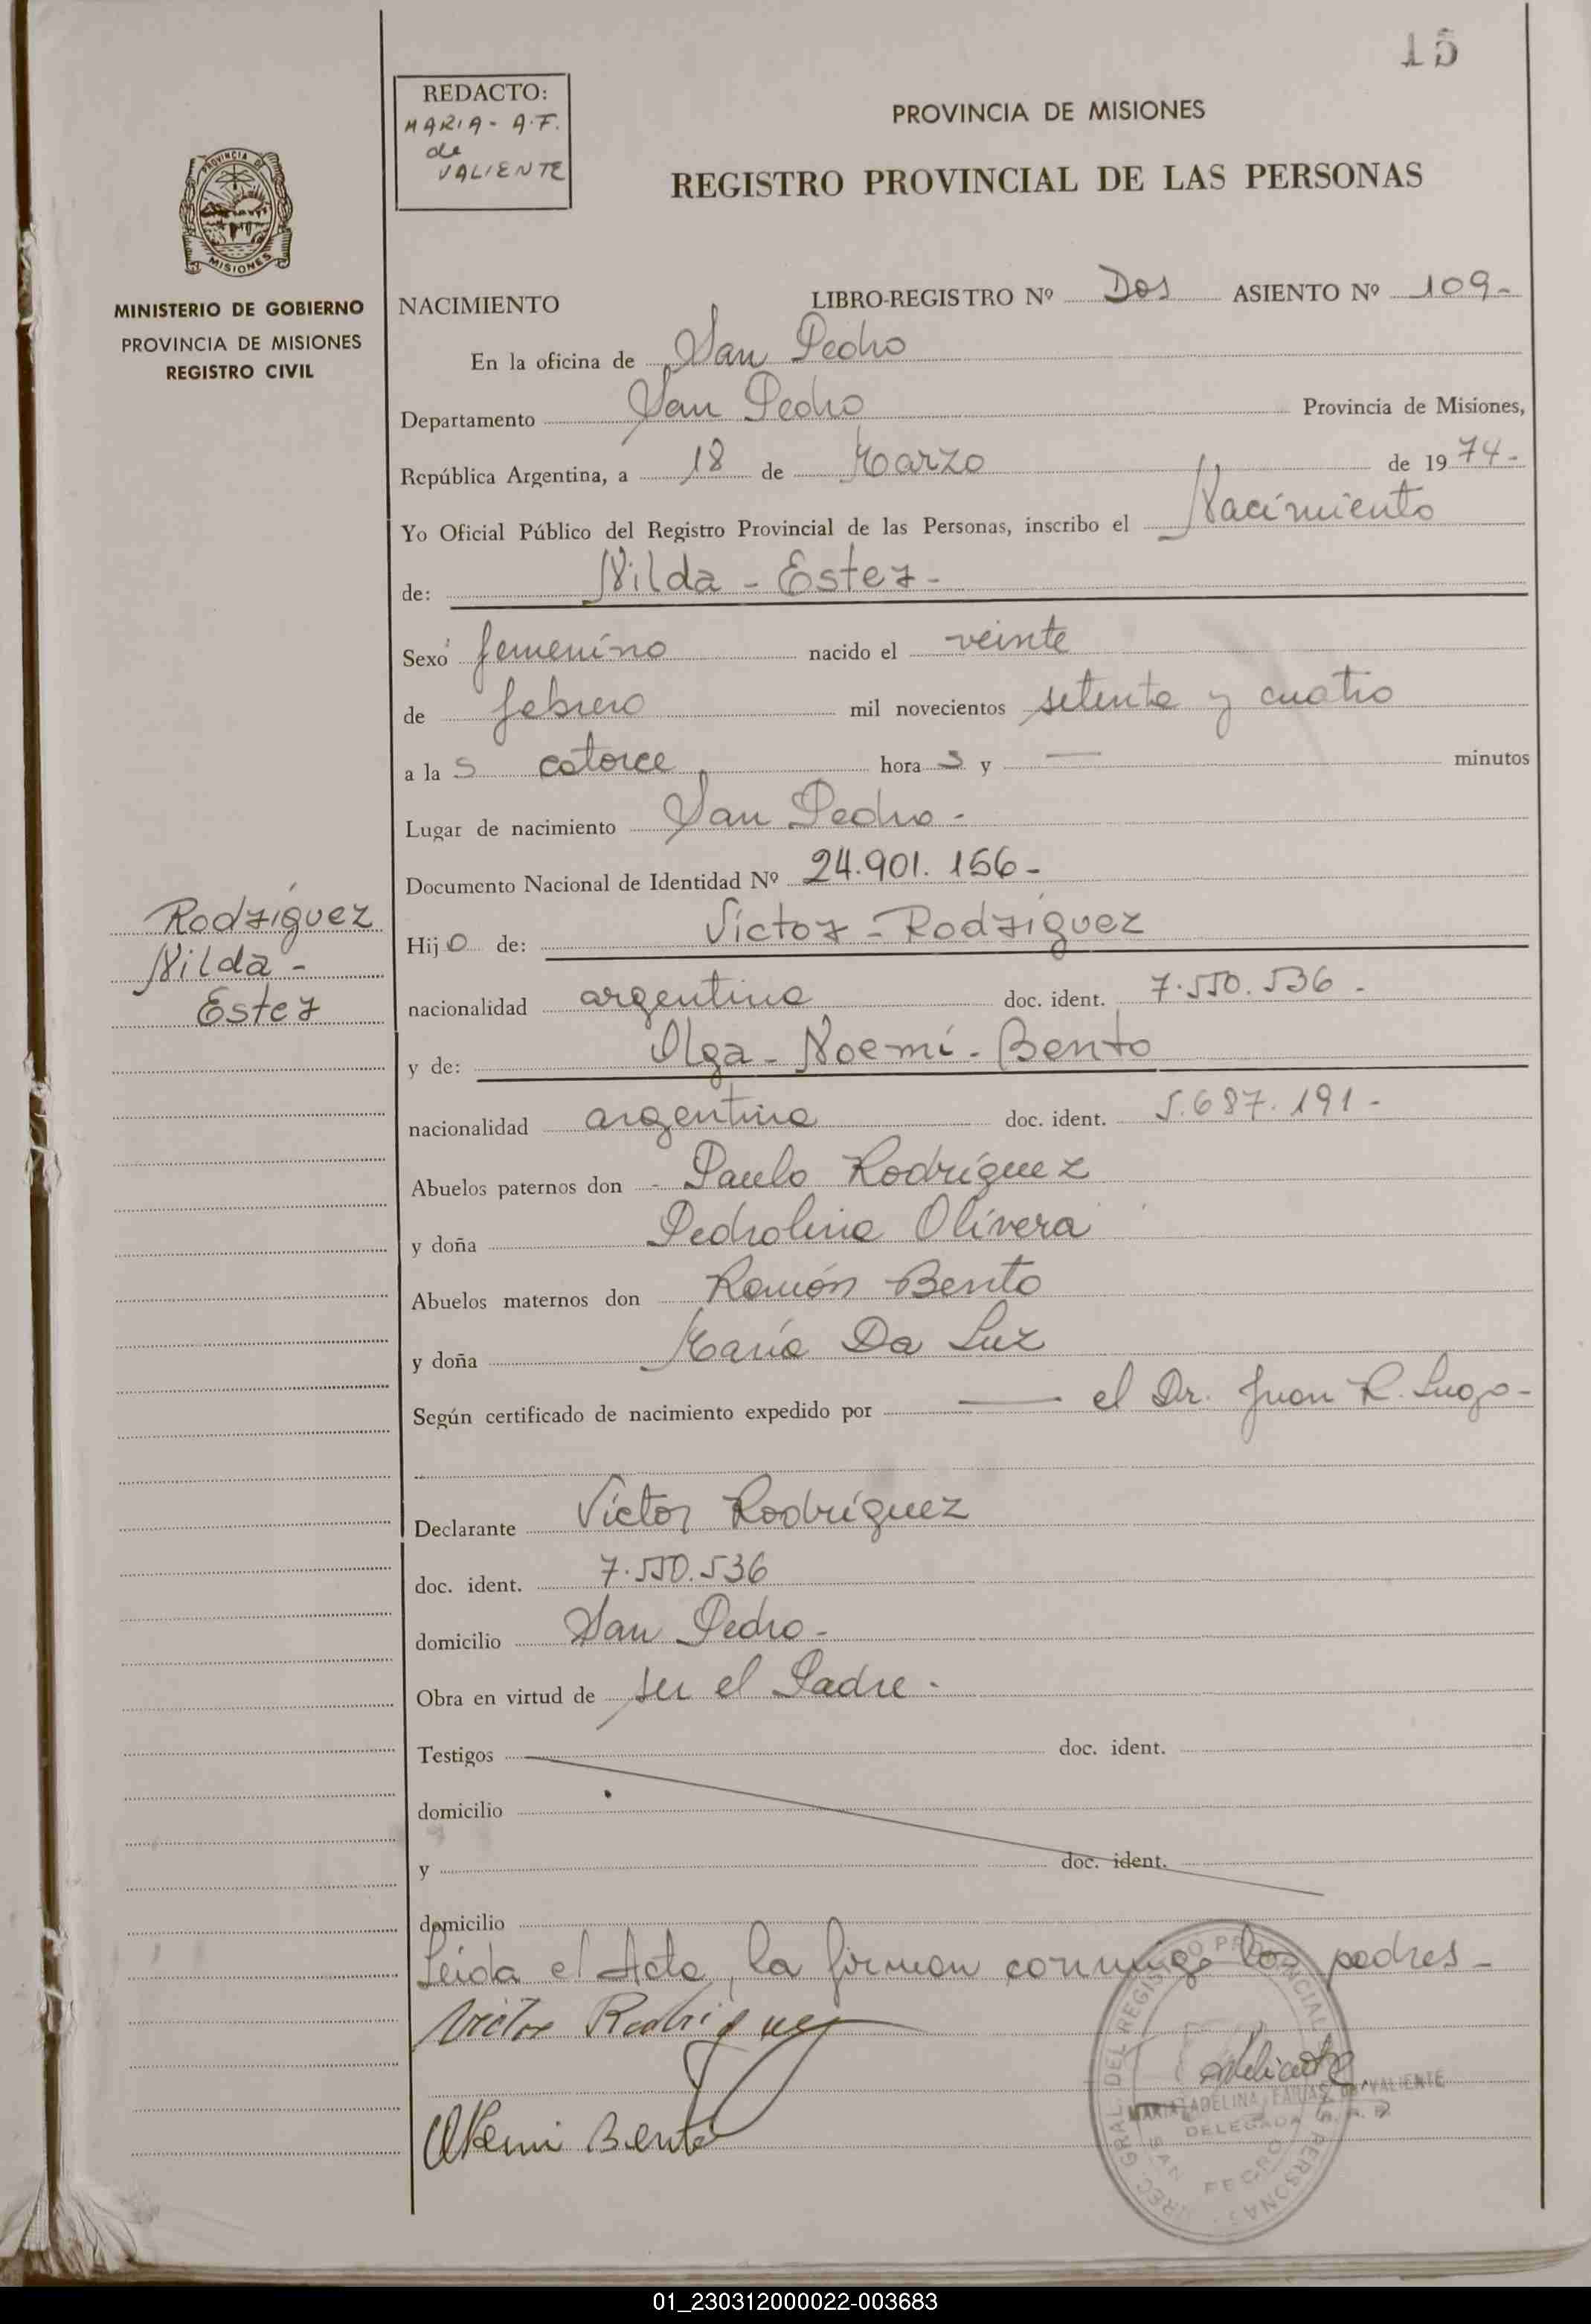 15
REDACTO:
MARIA - A.F.
de
VALIENTE
PROVINCIA DE MISIONES
REGISTRO PROVINCIAL DE LAS PERSONAS
PROVINCIA DE
MISIONES
MINISTERIO DE GOBIERNO
PROVINCIA DE MISIONES
REGISTRO CIVIL
NACIMIENTO LIBRO-REGISTRO Nº Dos ASIENTO Nº 109-
En la oficina de San Pedro
Departamento San Pedro Provincia de Misiones,
República Argentina, a 18 de Marzo de 1974-
Yo Oficial Público del Registro Provincial de las Personas, inscribo el Nacimiento
de: Nilda - Ester -
Sexo femenino nacido el veinte
de febrero mil novecientos setenta y cuatro
a las catorce horas y — minutos
Lugar de nacimiento San Pedro -
Documento Nacional de Identidad Nº 24.901.156-
Rodríguez
Nilda -
Ester
Hijo de: Víctor - Rodríguez
nacionalidad argentina doc. ident. 7.550.536 -
y de: Olga - Noemí - Bento
nacionalidad argentina doc. ident. 5.687.191 -
Abuelos paternos don - Paulo Rodríguez
y doña Pedrolina Olivera
Abuelos maternos don Ramón Bento
y doña María Da Luz
Según certificado de nacimiento expedido por — el Dr. Juan R. Lugo -
Declarante Víctor Rodríguez
doc. ident. 7.550.536
domicilio San Pedro -
Obra en virtud de ser el Padre -
Testigos doc. ident.
domicilio
y doc. ident.
domicilio
Leída el Acta, la firman conmigo los padres -
Victor Rodriguez
ONemi Bento
MARIA ADELINA FARIAS DE VALIENTE
DELEGADA R. P. P.
SAN PEDRO
DIREC. GRAL. DEL REGISTRO PROVINCIAL PERSONAS
01_230312000022-003683